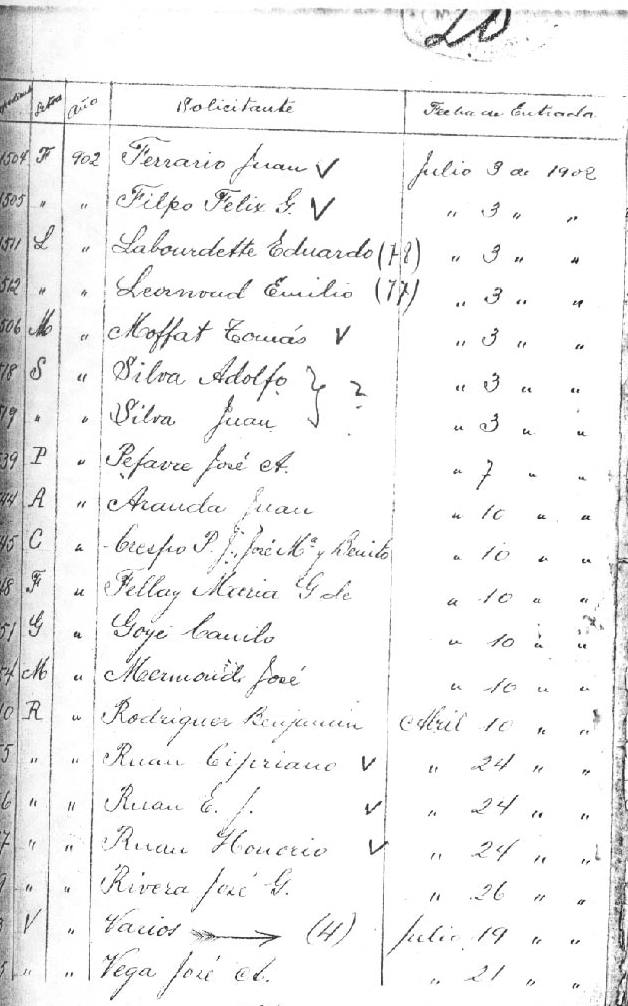 20
Letra Año Solicitante Fecha de Entrada
1504 F 902 Ferrario Juan V Julio 3 de 1902
1505 " " Filpo Felix G. V " 3 " "
1511 L " Labourdette Eduardo (78) " 3 " "
1512 " " Leornoud Emilio (77) " 3 " "
506 M " Moffat Tomás V " 3 " "
718 S " Silva Adolfo } ? " 3 " "
719 " " Silva Juan " 3 " "
39 P " Pefavre José A. " 7 " "
44 A " Aranda Juan " 10 " "
45 C " Crespo P. J., José Mª y Benito " 10 " "
48 F " Fellay Maria G de " 10 " "
51 G " Goyé Camilo " 10 " "
54 M " Mermoud José " 10 " "
0 R " Rodriguez Benjamin Abril 10 " "
5 " " Ruan Cipriano V " 24 " "
6 " " Ruan E. J. V " 24 " "
7 " " Ruan Honorio V " 24 " "
9 " " Rivera José G. " 26 " "
3 V " Varios → (4) Julio 19 " "
5 " " Vega José A. " 21 " "